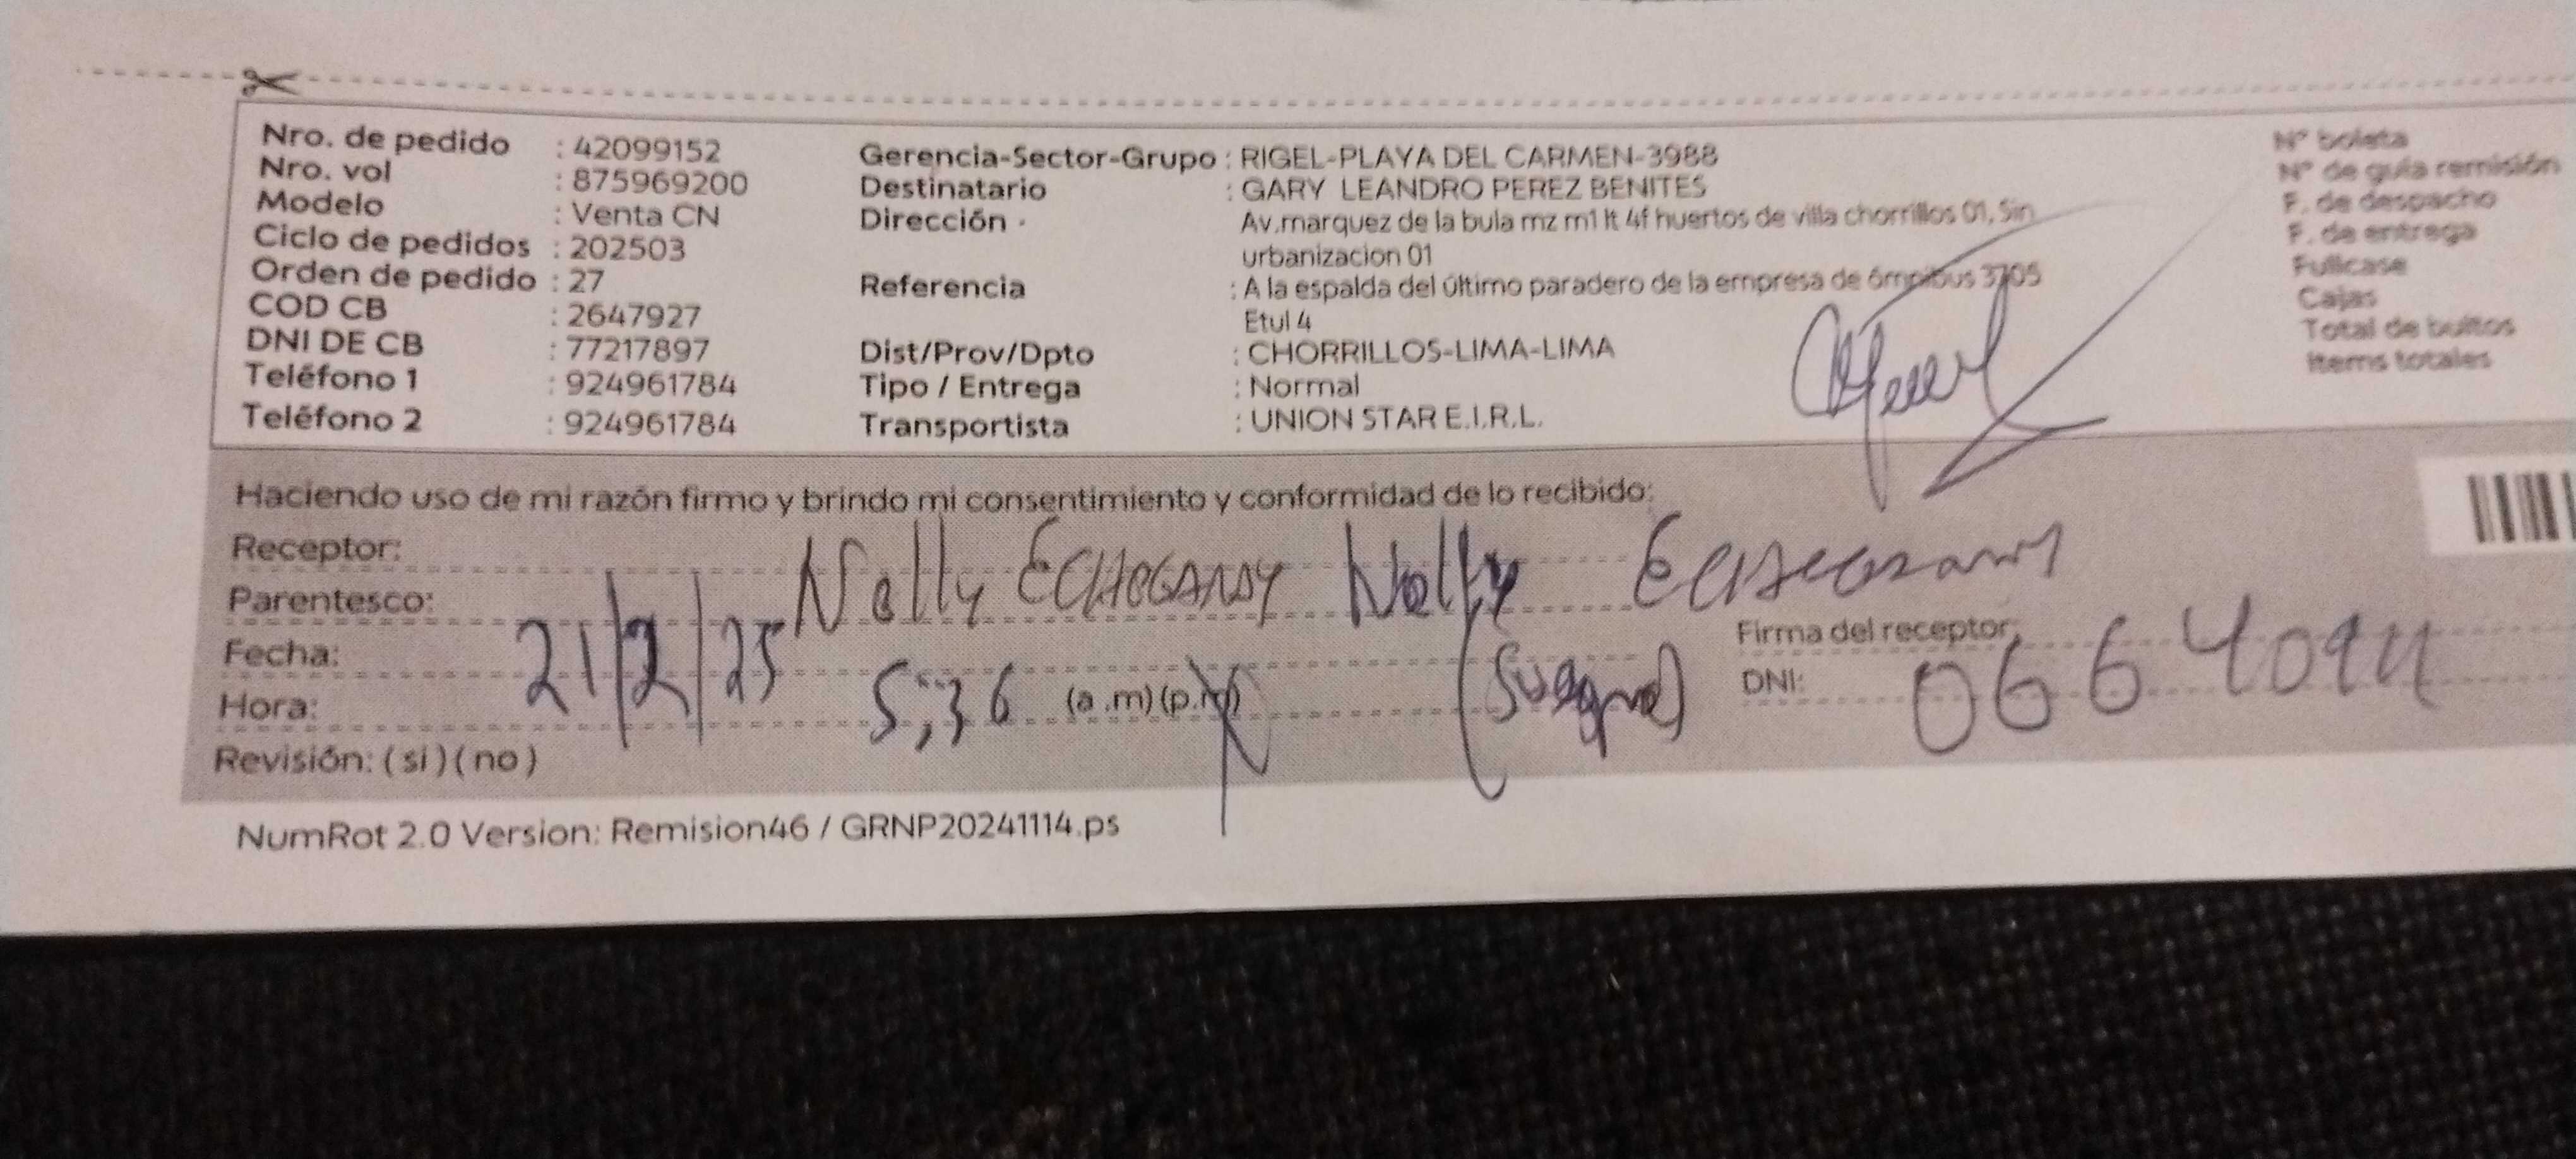 Nro. de pedido : 42099152
Nro. vol : 875969200
Modelo : Venta CN
Ciclo de pedidos : 202503
Orden de pedido : 27
COD CB : 2647927
DNI DE CB : 77217897
Teléfono 1 : 924961784
Teléfono 2 : 924961784
Gerencia-Sector-Grupo : RIGEL-PLAYA DEL CARMEN-3988
Destinatario : GARY LEANDRO PEREZ BENITES
Dirección : Av.marquez de la bula mz m1 lt 4f huertos de villa chorrillos 01, Sin
urbanizacion 01
Referencia : A la espalda del último paradero de la empresa de ómnibus 3705
Etul 4
Dist/Prov/Dpto : CHORRILLOS-LIMA-LIMA
Tipo / Entrega : Normal
Transportista : UNION STAR E.I.R.L.
Nº boleta
Nº de guía remisión
F. de despacho
F. de entrega
Fullcase
Cajas
Total de bultos
Items totales
Haciendo uso de mi razón firmo y brindo mi consentimiento y conformidad de lo recibido:
Receptor: Nelly Nelly
Parentesco: (Suegra)
Fecha: 21/2/25
Hora: 5:36 (a.m)(p.m)
Revisión: (si)(no)
Firma del receptor
DNI: 06640944
NumRot 2.0 Version: Remision46 / GRNP20241114.ps